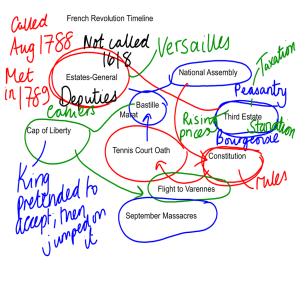 French Revolution Timeline
Called
Aug 1788
Met
in 1789
Not called
1618
Versailles
Estates-General
Deputies
Cahiers
National Assembly
Taxation
Peasantry
Bastille
Marat
Third Estate
Starvation
Rising
prices
Bourgeoisie
Cap of Liberty
Tennis Court Oath
Constitution
rules
Flight to Varennes
September Massacres
King
pretended to
accept, then
jumped on
it